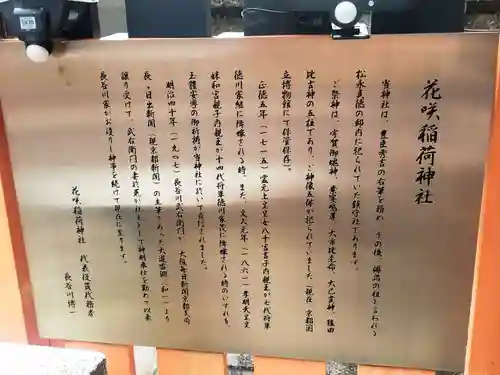 花咲稲荷神社
当神社は、豊臣秀吉の右筆を務め、その後、俳諧の祖と言われる
松永貞徳の邸内に祀られていた鎮守社であります。
ご祭神は、宇賀御魂神、
比古神の五柱であり、ご神像五体が祀られていました（現在 京都国
立博物館にて保管保存）。
正徳五年（一七一五）霊元上皇皇女八十宮吉子内親王が七代将軍
徳川家継に降嫁される時、また、文久元年（一八六一）孝明天皇皇
妹和宮親子内親王が十四代将軍徳川家茂に降嫁される時のいずれも、
玉體安寧の御祈祷が当神社に於いて斎行されました。
明治四十年（一九〇七）長谷川武右衛門が、大阪毎日新聞京都支局
長・日出新聞（現京都新聞）の主筆であった大道
譲り受けて、武右衛門の妻
長谷川家がお護りし神事を続けて現在に至ります。
花咲稲荷神社 代表役員代務者
長谷川博一